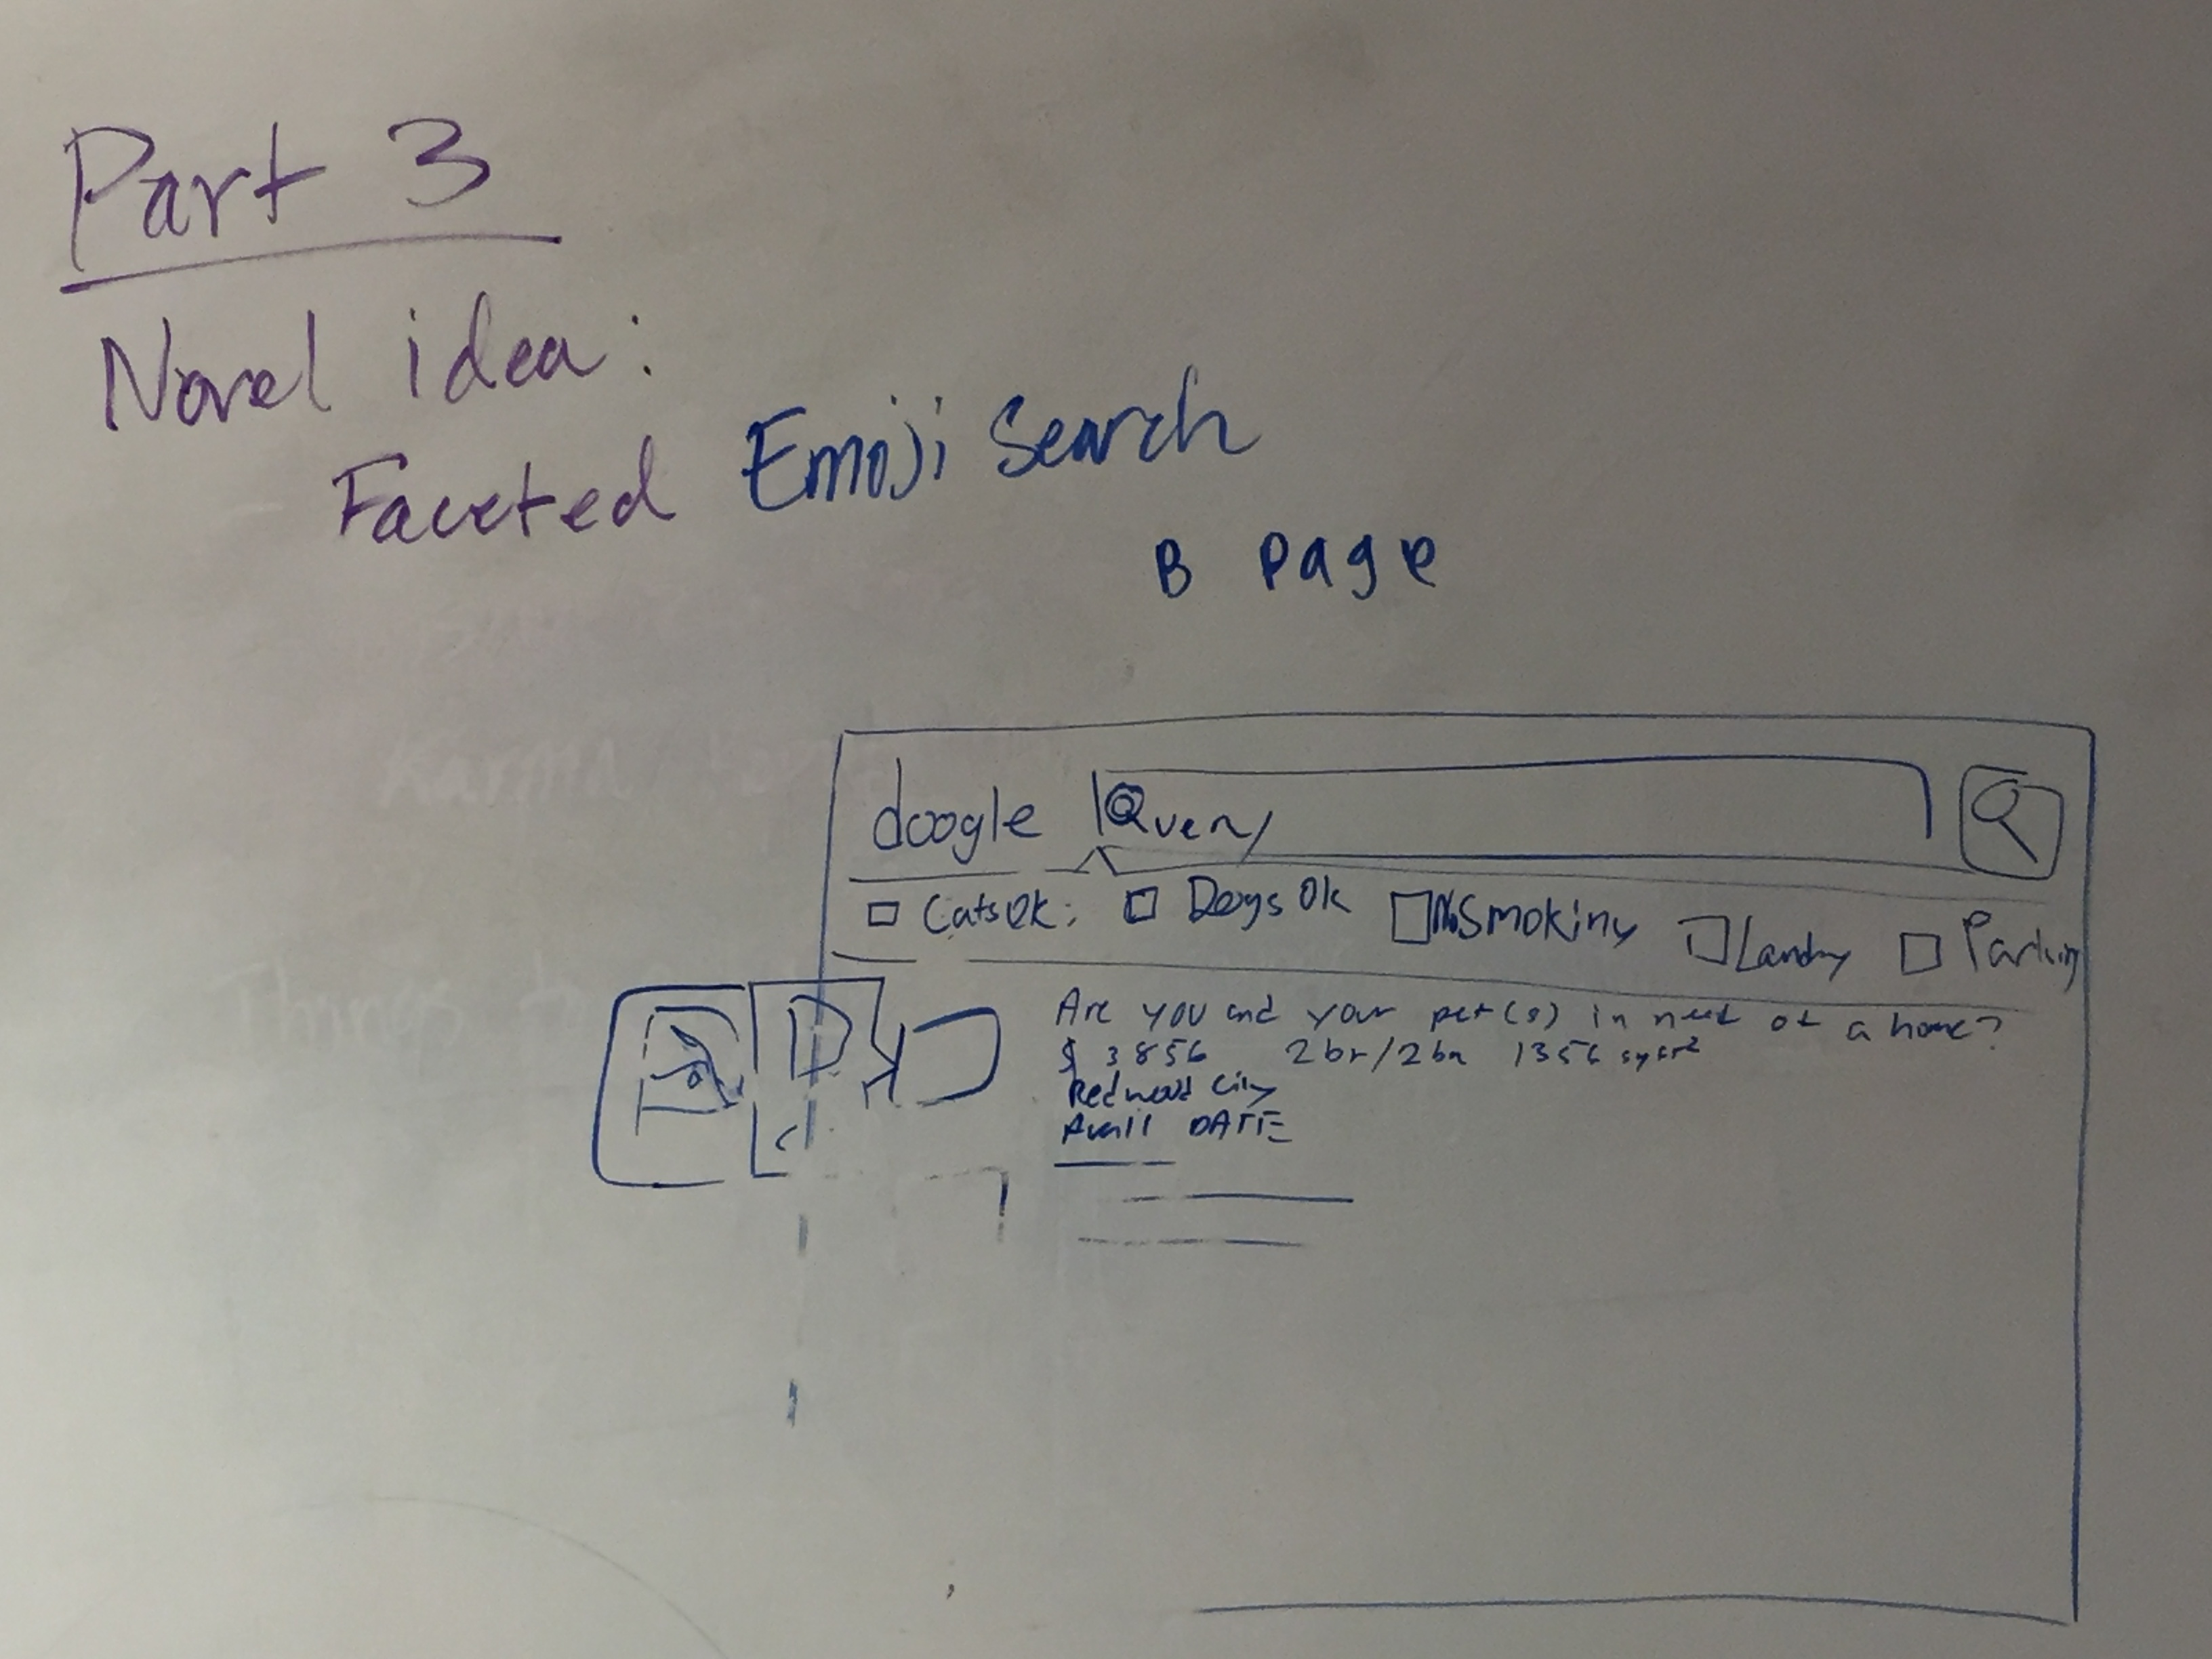 Part 3
Novel idea:
Faceted Emoji Search
B Page
doogle Query
Cats Ok Dogs Ok No Smoking Landry Parking
Are you and your pet(s) in need of a home?
$ 3856 2br/2ba 1356 sqft²
Redwood City
Avail DATE